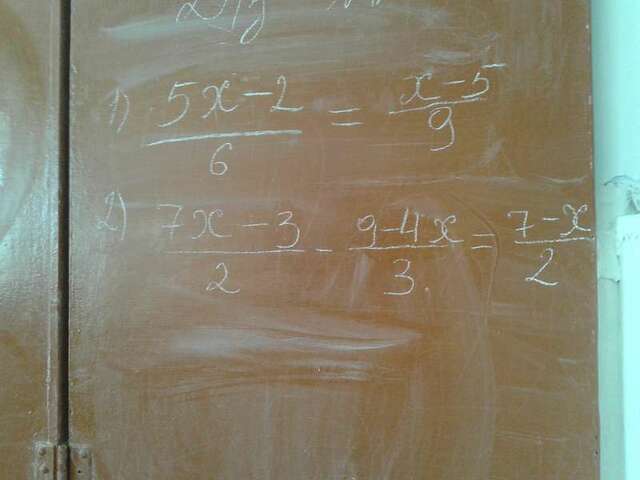 1) (5x-2)/6 = (x-5)/9
2) (7x-3)/2 - (9-4x)/3 = (7-x)/2